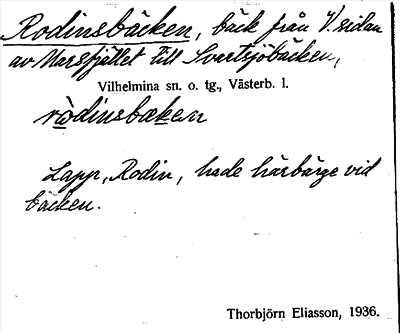 Rodinsbäcken, bäck från V. sidan
av Marsfjället till Svartsjöbäcken,
Vilhelmina sn. o. tg., Västerb. l.
rωdinsbæken
Lapp, Rodin, hade härbärge vid
bäcken.
Thorbjörn Eliasson, 1936.